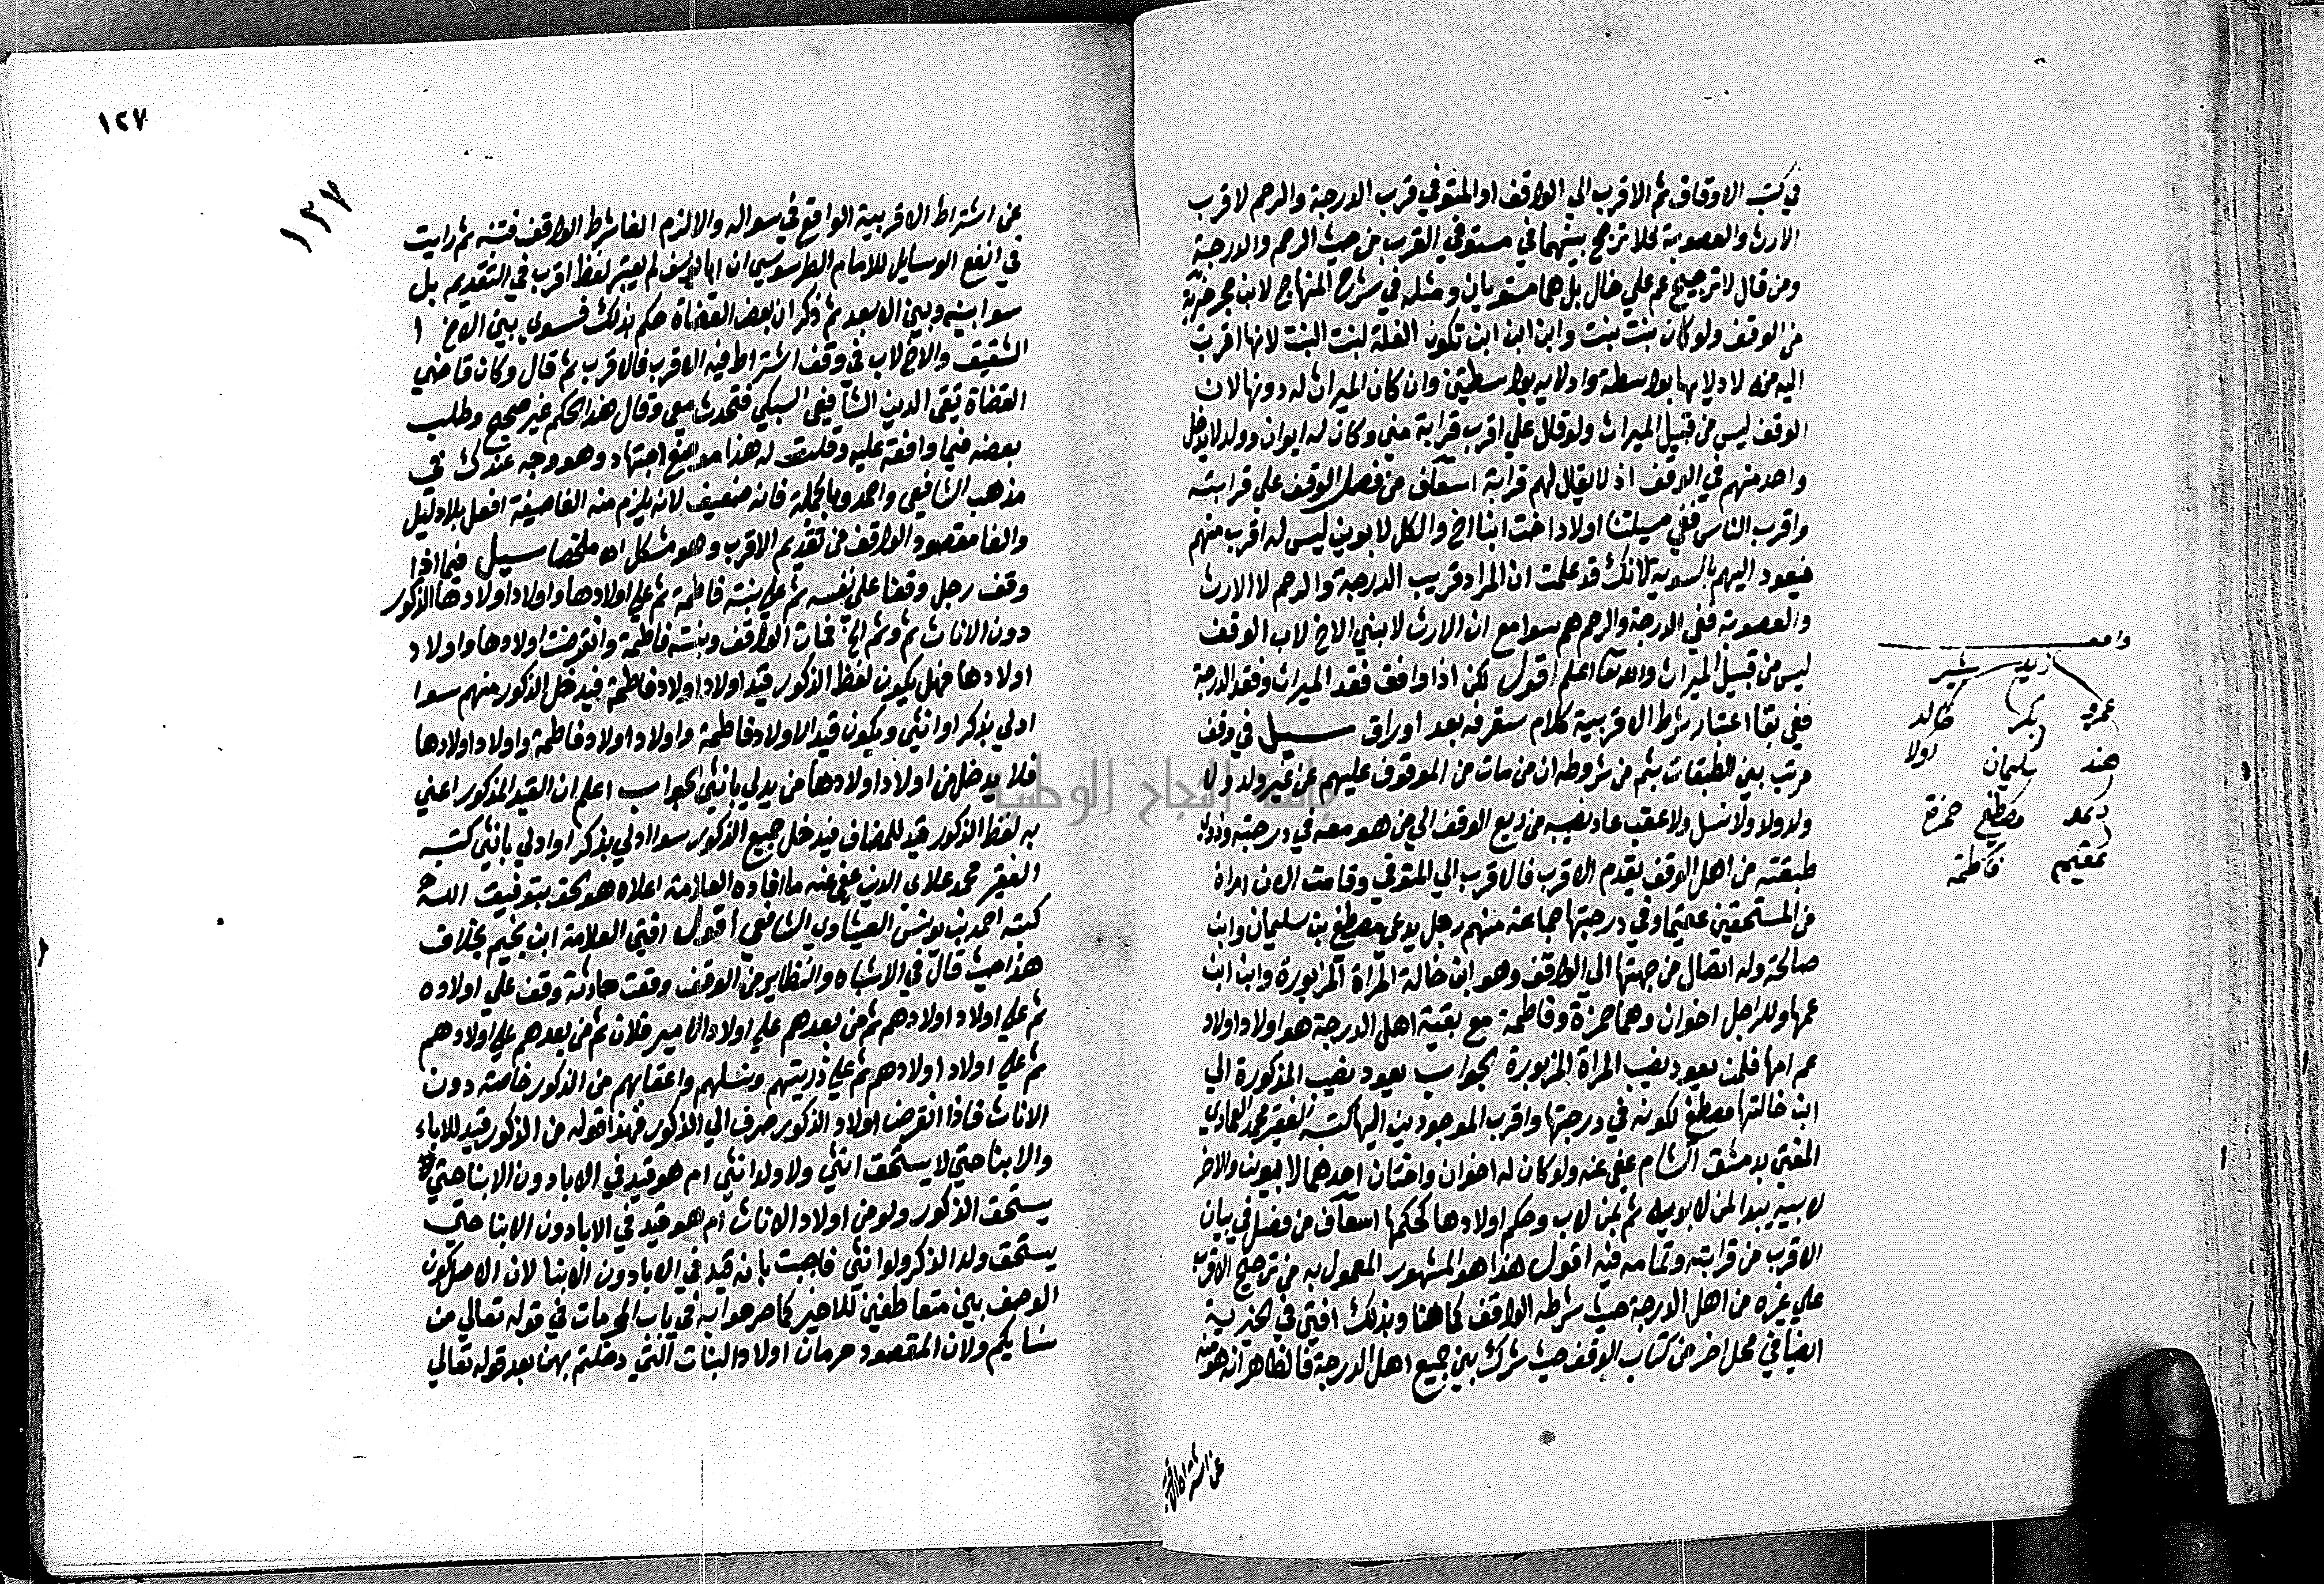 في كتب الاوقاف ثم الاقرب الي الواقف او المتوفي قرب الدرجة والرحم لا قرب
الارث والعصوبة فلا ترجيح بينهما في مستوفي القرب من حيث الرحم والدرجة
ومن قال لا ترجيح عم علي خال بل هما مستويان ومثله في شرح المنهاج لابن حجر
من الوقف ولو كان بنت بنت وابن ابن ابن تكون الغلة لبنت البنت لانها اقرب
اليه منه لادلايها بواسطة وادلايه بواسطتين وان كان الميراث له دونها لان
الوقف ليس من قبيل الميراث ولو قال علي اقرب قرابة مني وكان له ابوان وولد لا يدخل
واحد منهم في الوقف اذ لا يقال لهم قرابة اسعاف من فصل الوقف علي قرابته
واقرب الناس ففي مسيلتنا اولاد اخت ابنا اخ والكل لابوين ليس له اقرب منهم
فيعود اليهم بالسوية لانك قد علمت ان المراد قريب الدرجة والرحم لا الارث
والعصوبة ففي الدرجة والرحم هم سوا مع ان الارث لابني الاخ لاب الوقف
ليس من قبيل الميراث والله تعا اعلم اقول لكن اذا وافق فقد الميراث وفقد الدرجة
ففي بقا اعتبار شرط الاقربية كلام ستعرفه بعد اوراق سيل في وقف
مرتب بين الطبقات بثم من شروطه ان من مات من الموقوف عليهم عن غير ولد ولا
ولد ولد ولا نسل ولا عقب عاد نصيبه من ريع الوقف الي من هو معه في درجته وذوي
طبقته من اهل الوقف يقدم الاقرب فالاقرب الي المتوفي وقامت الان امراة
من المستحقين عقيما وفي درجتها جماعة منهم رجل يدعي مصطفي بن سليمان وابن
صالحة وله اتصال من جهتها الي الواقف وهو ابن خالة المراة المزبورة وابن ابن
عمها وللراجل اخوان وهما حمزة وفاطمة مع بقية اهل الدرجة هو اولاد اولاد
عم امها فلمن يعود نصيب المراة المزبورة الجواب يعود نصيب المذكورة الي
ابن خالتها مصطفي لكونه في درجتها واقرب الموجودين اليها كتبه الفقير محمد العمادي
المفتي بدمشق الشام عفي عنه ولو كان له اخوان واختان احدهما لابوين والاخر
لابيه يبدا لمن لابويه ثم لمن لاب وحكم اولادها كحكمها اسعاف من فصل في بيان
الاقرب من قرابته وتمامه فيه اقول هذا هو المشهور المعمول به من ترجيح الاقرب
علي غيره من اهل الدرجة حيث شرطه الواقف كما هنا وبذلك افتي في الخيرية
ايضا في محل اخر من كتاب الوقف حيث شرك بين جميع اهل الدرجة فالظاهر انه
عن اشتراط
زيد
عمرو بكر خالد
هند سليمان
دعد مصطفي حمزة
عقيم فاطمة
١٢٧
١٢٧
عن اشتراط الاقربية الواقع في سواله والا لزم الغا شرط الواقف فتنبه ثم رايت
في انفع الوسايل للامام الطرسوسي ان ابا يوسف لم يعتبر لفظ اقرب في التقديم بل
سوا بينه وبين الابعد ثم ذكر ان بعض القضاة حكم بذلك فسوي بين الاخ
الشقيق والاخ لاب في وقف اشتراط فيه الاقرب فالاقرب ثم قال وكان قاضي
القضاة تقي الدين الشافعي السبكي فتحدث معي وقال هذا الحكم غير صحيح وطلب
بعضه مني اوافقه عليه وقلت له هذا موضع اجتهاد وهو وجه عندك في
مذهب الشافعي واحمد وبالجملة فانه ضعيف لانه يلزم منه الغا صيغة افعل بلا دليل
والغا مقصود الواقف من تقديم الاقرب وهو مشكل اه ملخصا سيل فيما اذا
وقف رجل وقفا علي نفسه ثم علي بنته فاطمة ثم علي اولادها واولاد اولادها الذكور
دون الاناث ثم وثم الخ فمات الواقف وبنته فاطمة وانقرضت اولادها واولاد
اولادها فهل يكون لفظ الذكور قيد اولاد اولاد فاطمة فيدخل الذكور منهم سوا
ادلي بذكر او انثي ويكون قيد الاولاد فاطمة واولاد اولاد فاطمة واولاد اولادها
فلا يدخل من اولاد اولادها من يدلي بانثي الجواب اعلم ان القيد المذكور اعني
به لفظ الذكور قيد للمضاف فيدخل جميع الذكور سوا ادلي بذكر او ادلي بانثي كتبه
الفقير محمد علاي الدين عفي عنه ما افاده العلامة اعلاه هو الحق بتوفيق الله
كتبه احمد بن يونس العيثاوي الشافعي اقول افتي العلامة ابن نجيم بخلاف
هذا حيث قال في الاشباه والنظاير من الوقف وقعت حادثة وقف علي اولاده
ثم علي اولاد اولادهم ثم من بعدهم علي اولاد الامير فلان ثم من بعدهم علي اولادهم
ثم علي اولاد اولادهم ثم علي ذريتهم ونسلهم واعقابهم من الذكور خاصة دون
الاناث فاذا انقرض اولاد الذكور صرف الي الذكور فهذا قوله من الذكور قيد للاباء
والابنا حتي لا يستحق انثي ولا ولد انثي ام هو قيد في الابا دون الابنا حتي
يستحق الذكور ولو من اولاد الاناث ام هو قيد في الابا دون الابنا حتي
يستحق ولد الذكر ولو انثي فاجبت بانه قيد في الابا دون الابنا لان الاصل كون
الوصف بين متعاطفين للاخير كما صرحوا به في باب المحرمات في قوله تعالي من
نسايكم ولان المقصود حرمان اولاد البنات اللتي دخلتم بهن بعد قوله تعالي